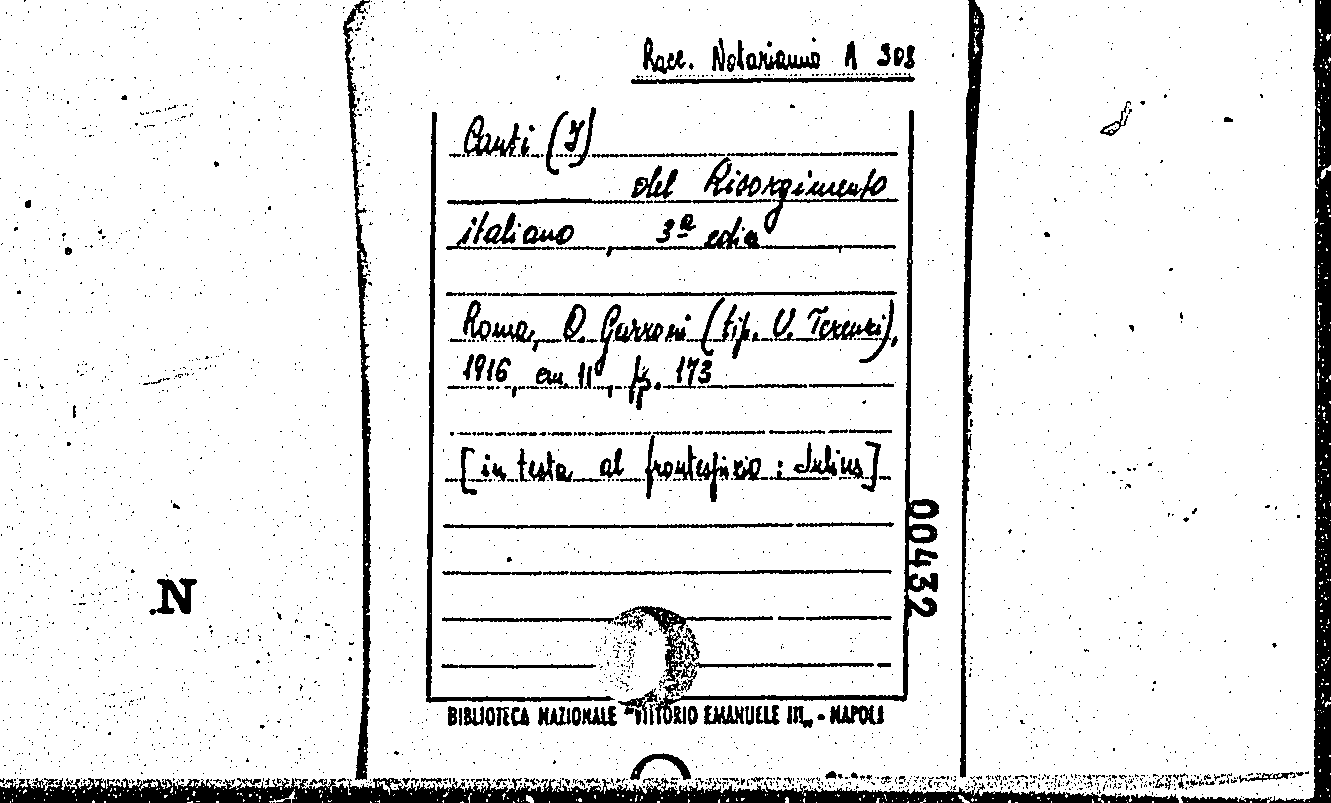 Racc. Notarianni A 308
Canti (I)
del Risorgimento
italiano, 3ª ediz
Roma, O. Garroni (tip. U. Terenzi),
1916, cm. 11, pp. 173
[in testa al frontespizio: Julius]
00432
.N
BIBLIOTECA NAZIONALE "VITTORIO EMANUELE III„ - NAPOLI